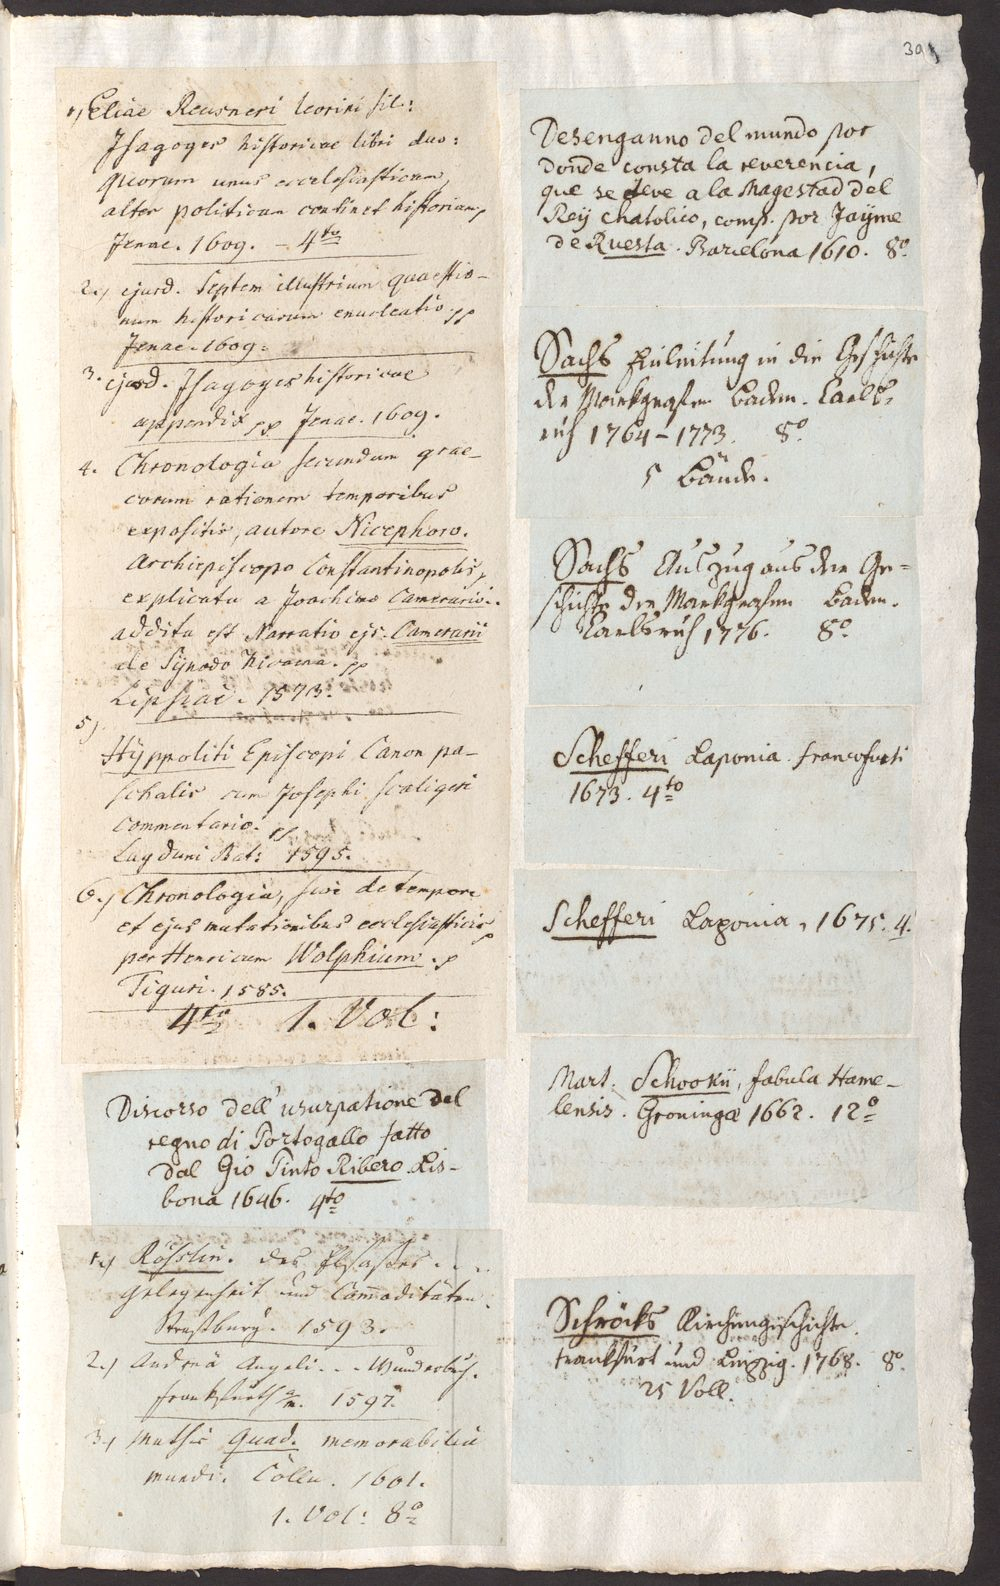 39
1) Eliae Reusneri Leorini fil:
Isagoges historicae libri duo:
quorum unus ecclesiasticam,
alter politicam continet historiam,
Jenae. 1609. – 4to
2.) ejusd. Septem illustrium quaestio-
num historicarum enucleatio. pp
Jenae. 1609.
3. ejusd. Isagoges historicae
appendix pp Jenae. 1609.
4. Chronologia secundum grae-
corum rationem temporibus
expositis, autore Nicephoro.
Archiepiscopo Constantinopolis,
explicata a Joachimo Camerario.
addita est Narratio ejs. Camerarii
de Synodo Nicaena. pp
Lipsiae. 1573.
5)
Hyppoliti Episcopi Canon pa-
schalis cum Josephi Scaligeri
commentario. pp
Lugduni Bat: 1595.
6.) Chronologia, sive de tempore
et ejus mutationibus ecclesiasticis
per Henricum Wolphium. p
Tiguri. 1585.
4to 1. Vol:
Discorso dell' usurpatione del
regno di Portogallo fatto
dal Gio Pinto Ribero. Lis-
bona 1646. 4to
1.) Rösslin. des Elsasses . . .
Gelegenheit und Com̅aditäten.
Strassburg. 1593.
2.) Andreä Angeli . . . Wunderbuch.
Frankfurth a/m. 1597.
3.) Mathis Quad. memorabilia
mundi. Cölln. 1601.
1. Vol: 8o
Desenganno del mundo por
donde consta la reverencia,
que se deve a la Magestad del
Rey Chatolico, comp. por Jayme
de Ruesta. Barcelona 1610. 8o
Sachs Einleitung in die Geschichte
der Markgrafen Baden. Carls-
ruh 1764 – 1773. 8o
5 Bände.
Sachs Auszug aus der Ge=
schichte der Markgrafen Baden.
Carlsruh 1776. 8o
Schefferi Laponia. Francofurti
1673. 4to
Schefferi Laponia, 1675. 4.
Mart. Schookii, fabula Hame-
lensis. Groningæ 1662. 12o
Schröcks Kirchengeschichte.
Frankfurt und Leipzig. 1768. 8o
25 Voll.